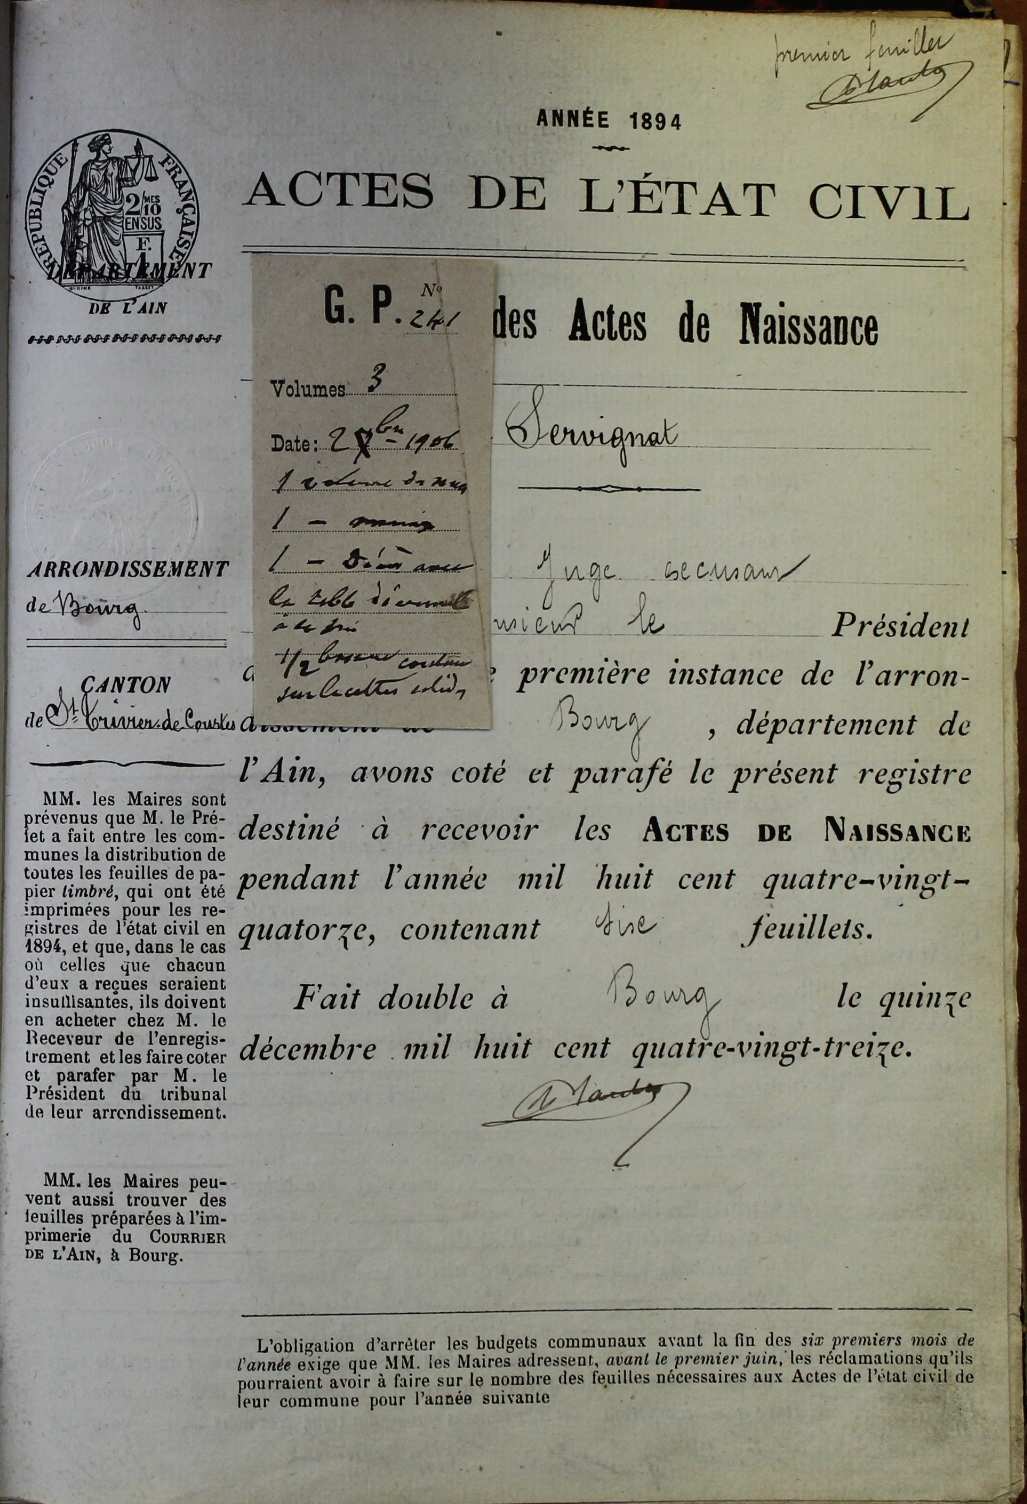 premier feuillet
ANNÉE 1894
ACTES DE L'ÉTAT CIVIL
RÉPUBLIQUE FRANÇAISE
2/10MES
EN SUS
F.
DÉPARTEMENT
DE L'AIN
G. P. No 241
des Actes de Naissance
Volumes 3
Date: 2 Xbre 1906
Servignat
1 volume de
1 —
1 — Décès avec
la table décennale
1/2
sur
ARRONDISSEMENT
de Bourg
CANTON
de St Trivier-de-Courtes
Juge
le Président
première instance de l'arron-
dissement de Bourg, département de
l'Ain, avons coté et parafé le présent registre
destiné à recevoir les ACTES DE NAISSANCE
pendant l'année mil huit cent quatre-vingt-
quatorze, contenant feuillets.
Fait double à Bourg le quinze
décembre mil huit cent quatre-vingt-treize.
MM. les Maires sont
prévenus que M. le Pré-
fet a fait entre les com-
munes la distribution de
toutes les feuilles de pa-
pier timbré, qui ont été
imprimées pour les re-
gistres de l'état civil en
1894, et que, dans le cas
où celles que chacun
d'eux a reçues seraient
insuffisantes, ils doivent
en acheter chez M. le
Receveur de l'enregis-
trement et les faire coter
et parafer par M. le
Président du tribunal
de leur arrondissement.
MM. les Maires peu-
vent aussi trouver des
feuilles préparées à l'im-
primerie du COURRIER
DE L'AIN, à Bourg.
L'obligation d'arrêter les budgets communaux avant la fin des six premiers mois de
l'année exige que MM. les Maires adressent, avant le premier juin, les réclamations qu'ils
pourraient avoir à faire sur le nombre des feuilles nécessaires aux Actes de l'état civil de
leur commune pour l'année suivante